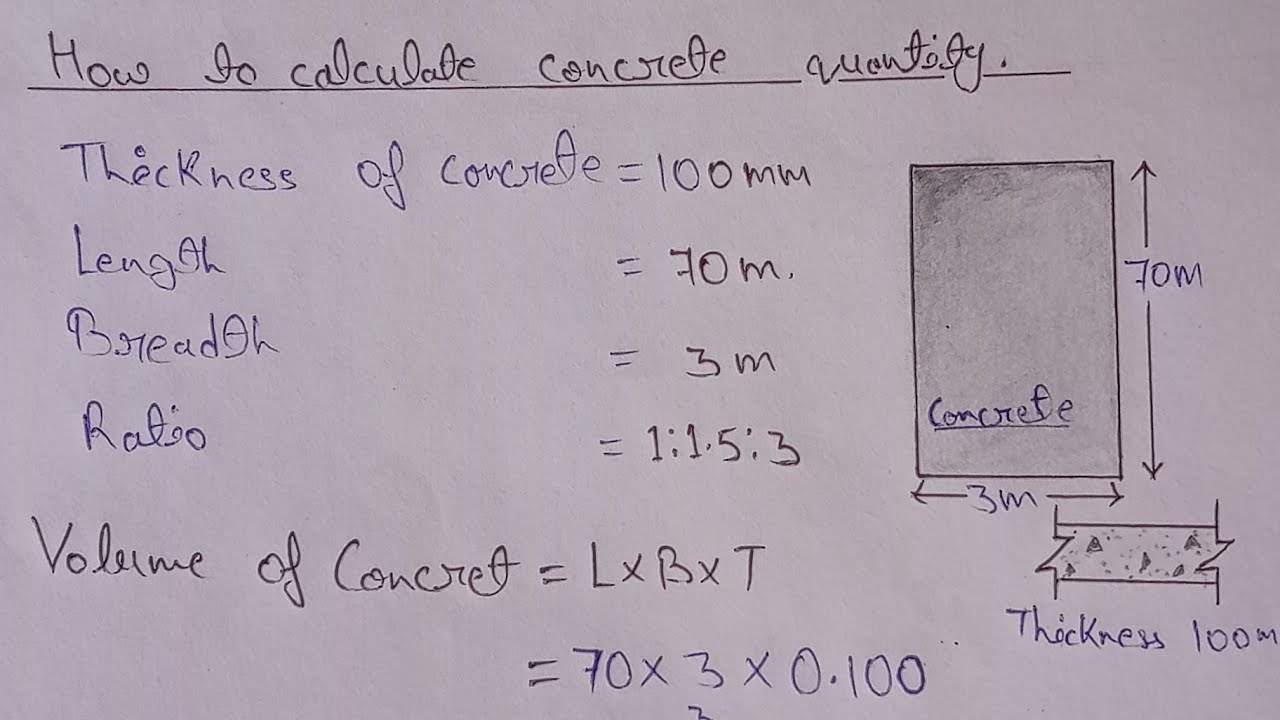 How to calculate concrete quantity.
Thickness of concrete = 100mm
Length = 70m.
Breadth = 3m
Ratio = 1:1.5:3
70m
Concrete
3m
Volume of Concret = L×B×T
Thickness 100m
= 70 × 3 × 0.100